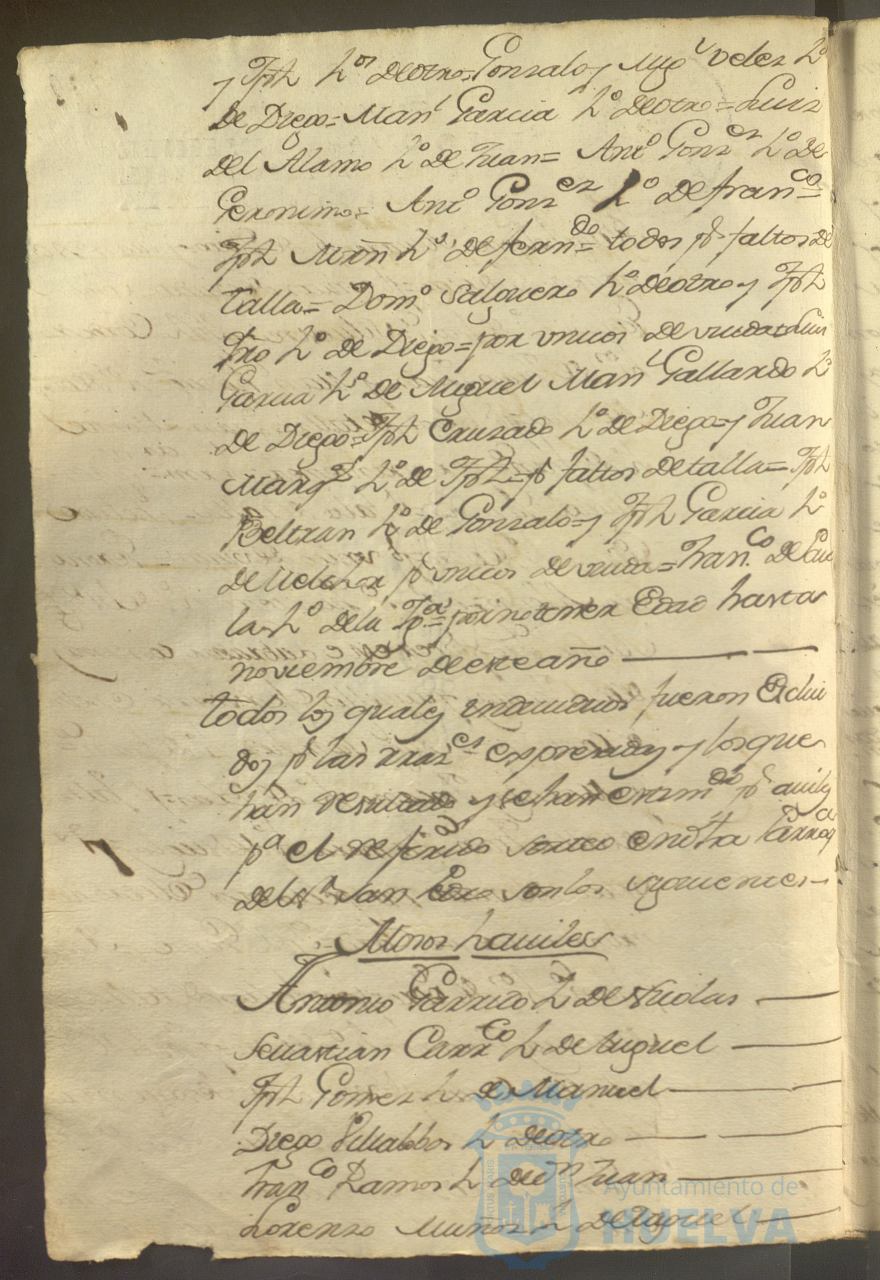 y Jph h.º de otro= Gonzalo y Mig.l Velez h.º
de Diego= Man.l Garcia h.º de otro= Luis
del Alamo h.º de Juan= Ant.º Gonz.ez h.º de
Geronimo= Ant.º Gonz.ez h.º de Fran.co=
Jph Mrñ h.º de Fern.do= todos p.r faltos de
talla= Dom.º Salguero h.º de otro y Jph
h.º de Diego= por unicos de viuda= Luis
Garcia h.º de Miguel Man.l Gallardo h.º
de Diego= Jph Cruzado h.º de Diego= y Juan
Marq.z h.º de Jph= p.r faltos de talla= Jph
Beltran h.º de Gonzalo= y Jph Garcia h.º
de Melchor p.r unicos de viuda= Fran.co de
la h.º de la por no tener Edad hasta
noviembre de este año
todos los quales yndividuos fueron Exclui
dos p.r las rraz.es expresadas y los que
han resultado y se han exam.do p.r aviles
p.a el referido sorteo en dha Parroq.a
del S.r San Pedro son los siguientes
Mosos haviles
Antonio Garrido h.º de Nicolas
Sevastian Carr.co h.º de Miguel
Jph Gomez h.º de Manuel
Diego Villalobos h.º de otro
Fran.co Ramos h.º de D.n Juan
Lorenzo Muñoz h.º de
Ayuntamiento de
HUELVA